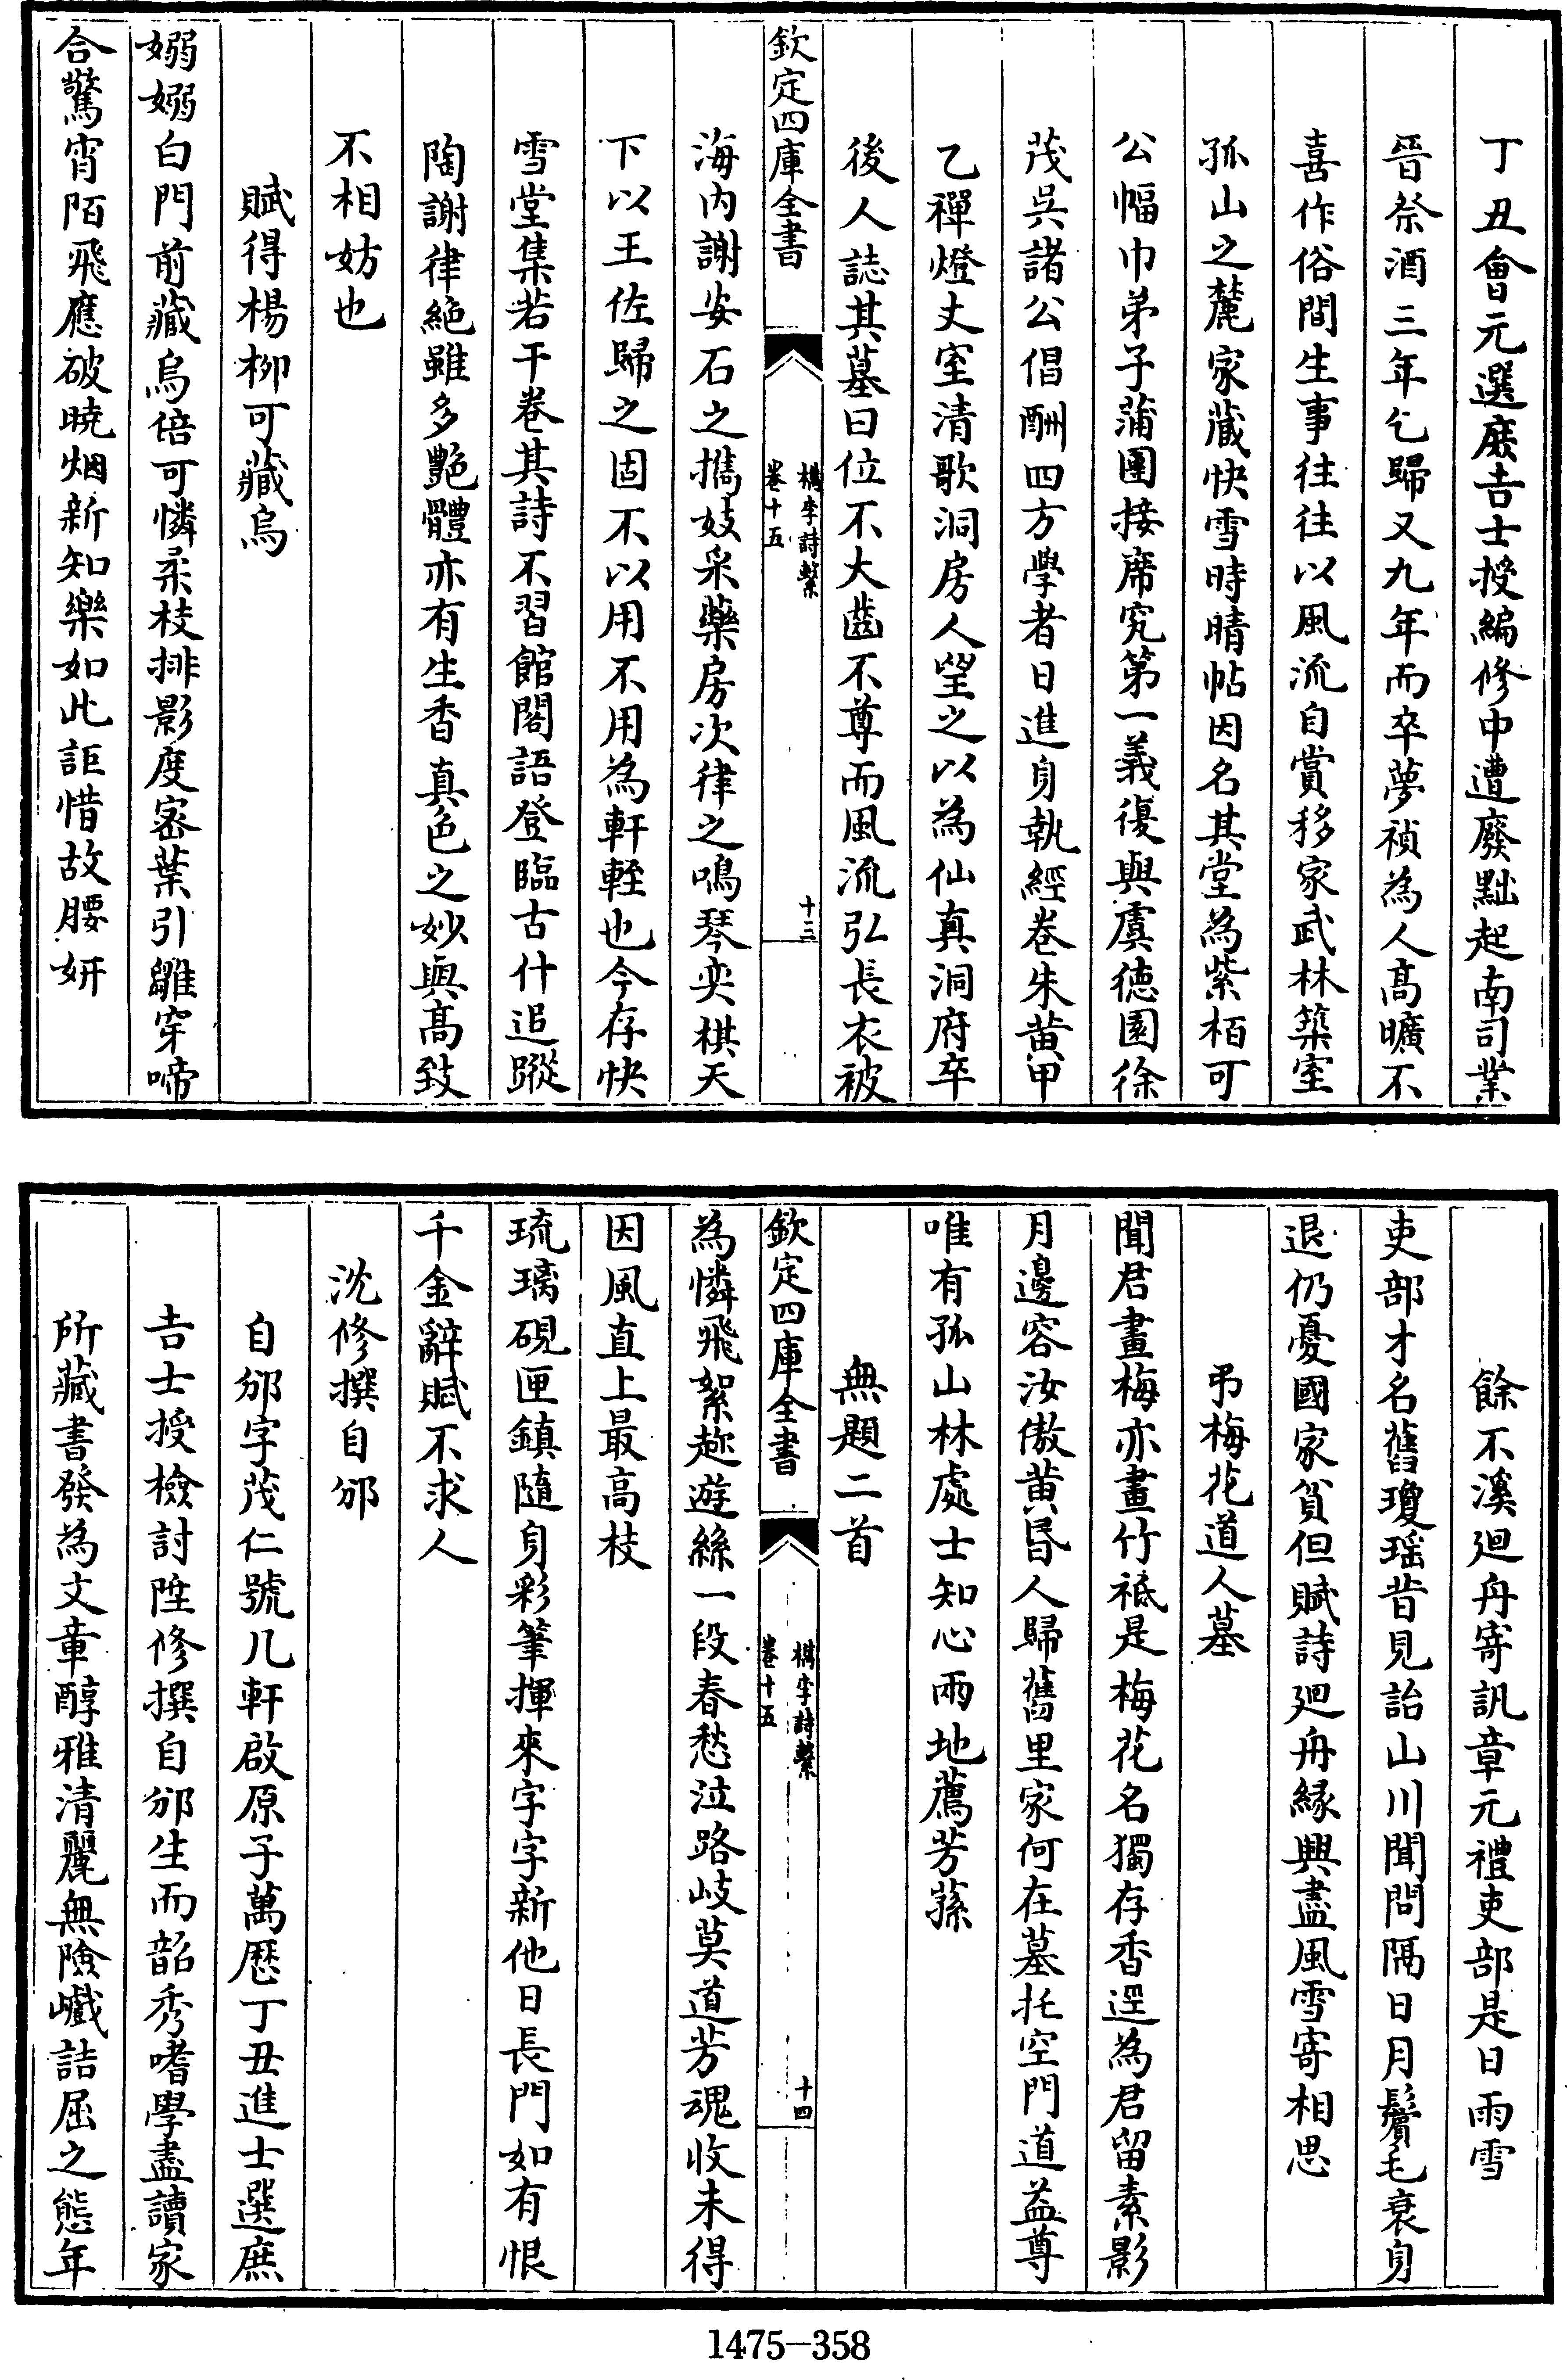 丁丑會元選庶吉士授編修中遭廢黜起南司業
晉祭酒三年乞歸又九年而卒夢禎為人高曠不
喜作俗間生事往往以風流自賞移家武林築室
孤山之麓家藏快雪時晴帖因名其堂為紫栢可
公幅巾弟子蒲團接席究第一義復與虞德園徐
茂吳諸公倡酬四方學者日進身執經卷朱黃甲
乙禪燈丈室清歌洞房人望之以為仙真洞府卒
後人誌其墓曰位不大齒不尊而風流弘長衣被
欽定四庫全書
檇李詩繫
卷十五
十三
海内謝安石之攜妓采藥房次律之鳴琴奕棋天
下以王佐歸之固不以用不用為軒輊也今存快
雪堂集若干卷其詩不習館閣語登臨古什追蹤
陶謝律絕雖多艷體亦有生香真色之妙與高致
不相妨也
賦得楊柳可藏烏
嫋嫋白門前藏烏倍可憐柔枝排影度密葉引雛穿啼
合驚宵陌飛應破曉烟新知樂如此詎惜故腰妍
餘不溪迴舟寄訊章元禮吏部是日雨雪
吏部才名舊瓊瑤昔見詒山川聞問隔日月鬢毛衰身
退仍憂國家貧但賦詩迴舟緣興盡風雪寄相思
弔梅花道人墓
聞君畫梅亦畫竹祗是梅花名獨存香逕為君留素影
月邊容汝傲黃昏人歸舊里家何在墓托空門道益尊
唯有孤山林處士知心兩地薦芳蓀
無題二首
欽定四庫全書
檇李詩繫
卷十五
十四
為憐飛絮趂遊絲一段春愁泣路岐莫道芳魂收未得
因風直上最高枝
琉璃硯匣鎮隨身彩筆揮來字字新他日長門如有恨
千金辭賦不求人
沈修撰自邠
自邠字茂仁號几軒啟原子萬歷丁丑進士選庶
吉士授檢討陞修撰自邠生而韶秀嗜學盡讀家
所藏書發為文章醇雅清麗無險巇詰屈之態年
1475-358